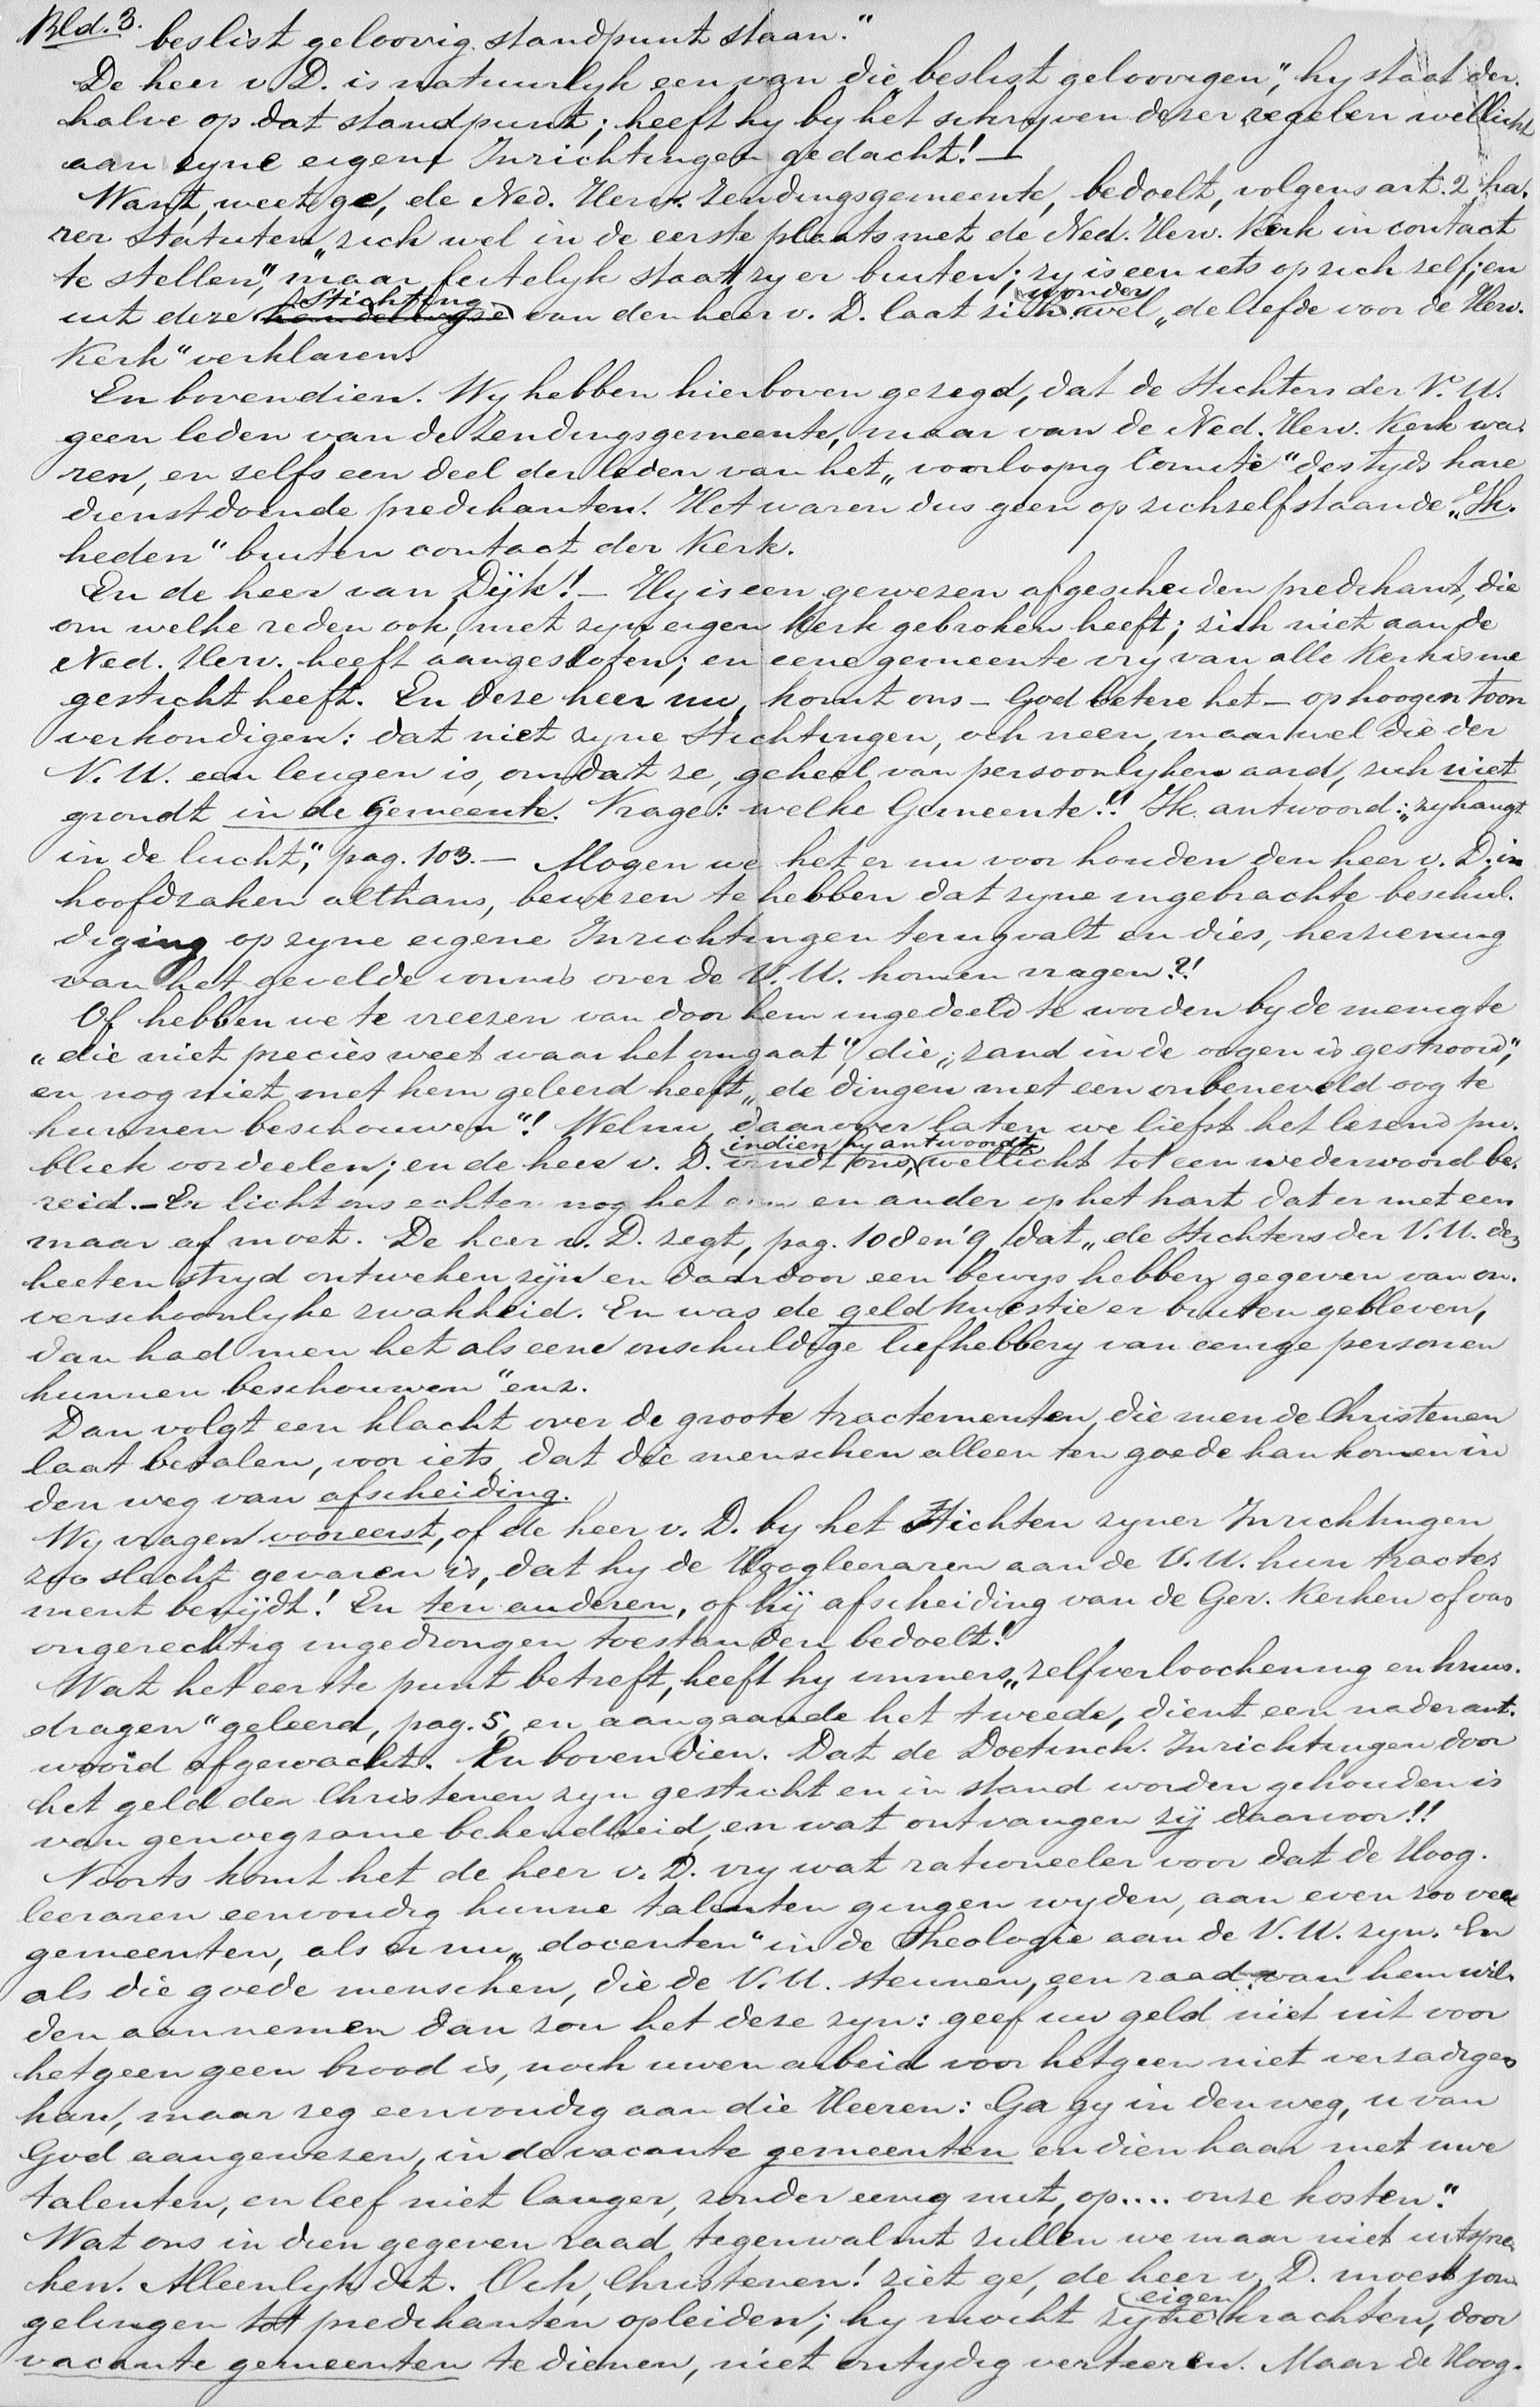 Bld. 3. beslist geloovig standpunt staan."
De heer v D. is natuurlyk een van die „beslist geloovigen", hy staat der-
halve op dat standpunt; heeft hy by het schryven dezer regelen wellicht
aan zyne eigene Inrichtingen gedacht! —
Want, weet ge, de Ned. Herv. Zendingsgemeente, bedoelt, volgens art. 2 ha-
rer Statuten „zich wel in de eerste plaats met de Ned. Herv. Kerk in contact
te stellen," maar feitelyk staat zy er buiten; zy is een iets op zich zelf; en
uit deze Stichting van den heer v. D. laat zich wonder wel „de liefde voor de Herv.
Kerk" verklaren.
En bovendien. Wy hebben hierboven gezegd, dat de Stichters der V. U.
geen leden van de Zendingsgemeente, maar van de Ned. Herv. Kerk wa-
ren, en zelfs een deel der leden van het „voorloopig Comité" destyds hare
dienstdoende predikanten. Het waren dus geen op zichzelfstaande „Ik-
heden" buiten contact der Kerk.
En de heer van Dijk! — Hy is een gewezen afgescheiden predikant, die
om welke reden ook, met zyn eigen Kerk gebroken heeft; zich niet aan de
Ned. Herv. heeft aangesloten; en eene gemeente vry van alle Kerkisme
gesticht heeft. En deze heer nu, komt ons — God betere het — op hoogen toon
verkondigen: dat niet zyne Stichtingen, och neen, maar wel die der
V. U. een leugen is, omdat ze, geheel van persoonlyken aard, zich niet
grondt in de Gemeente. Vrage: welke Gemeente!! Ik antwoord: „zy hangt
in de lucht", pag. 103. — Mogen we het er nu voor houden den heer v. D. in
hoofdzaken althans, bewezen te hebben dat zyne ingebrachte beschul-
diging op zyne eigene Inrichtingen terugvalt en dies, herziening
van het gevelde vonnis over de V. U. komen vragen?!
Of hebben we te vreezen van door hem ingedeeld te worden by de menigte
„die niet precies weet waar het om gaat", die „zand in de oogen is gestrooid",
en nog niet met hem geleerd heeft „de dingen met een onbeneveld oog te
kunnen beschouwen"! Welnu, daarover laten we liefst het lezend pu-
bliek oordeelen; en de heer v. D. vindt ons, indien hy antwoordt, wellicht tot een wederwoord be-
reid. — Er licht ons echter nog het een en ander op het hart dat er met een
maar af moet. De heer v. D. zegt, pag. 108 en '9, dat „de Stichters der V. U. den
heeten stryd ontweken zijn en daardoor een bewys hebben gegeven van on-
verschoonlyke zwakheid. En was de geldkwestie er buiten gebleven,
dan had men het als eene onschuldige liefhebbery van eenige personen
kunnen beschouwen" enz.
Dan volgt een klacht over de groote tractementen, die men de Christenen
laat betalen, voor iets, dat die menschen alleen ten goede kan komen in
den weg van afscheiding.
Wy vragen vooreerst, of de heer v. D. by het Stichten zyner Inrichtingen
zoo slecht gevaren is, dat hy de Hoogleeraren aan de V. U. hun tracte-
ment benijdt! En ten anderen, of hij afscheiding van de Ger. Kerken of van
ongerechtig ingedrongen toestanden bedoelt!
Wat het eerste punt betreft, heeft hy immers „zelfverloochening en kruis-
dragen" geleerd, pag. 5, en aangaande het tweede, dient een nader ant-
woord afgewacht. En bovendien. Dat de Doetinch. Inrichtingen door
het geld der Christenen zyn gesticht en in stand worden gehouden is
van genoegzame bekendheid, en wat ontvangen zij daarvoor!!
Voorts komt het de heer v. D. vry wat rationeeler voor dat de Hoog-
leeraren eenvoudig hunne talenten gingen wyden, aan even zoo veel
gemeenten, als er nu „docenten" in de Theologie aan de V. U. zyn. En
als die goede menschen, die de V. U. steunen, een raad van hem wil-
den aannemen dan zou het deze zyn: geef uw geld niet uit voor
hetgeen geen brood is, noch uwen arbeid voor hetgeen niet verzadigen
kan, maar zeg eenvoudig aan die Heeren: Ga gy in den weg, u van
God aangewezen, in de vacante gemeenten en dien haar met uwe
talenten, en leef niet langer, zonder eenig nut, op.... onze kosten."
Wat ons in dien gegeven raad tegenwalmt zullen we maar niet uitspre-
ken. Alleenlyk dit. Och, Christenen! ziet ge, de heer v. D. moest jon-
gelingen tot predikanten opleiden; hy mocht zijne eigen krachten, door
vacante gemeenten te dienen, niet ontydig verteeren. Maar de Hoog-